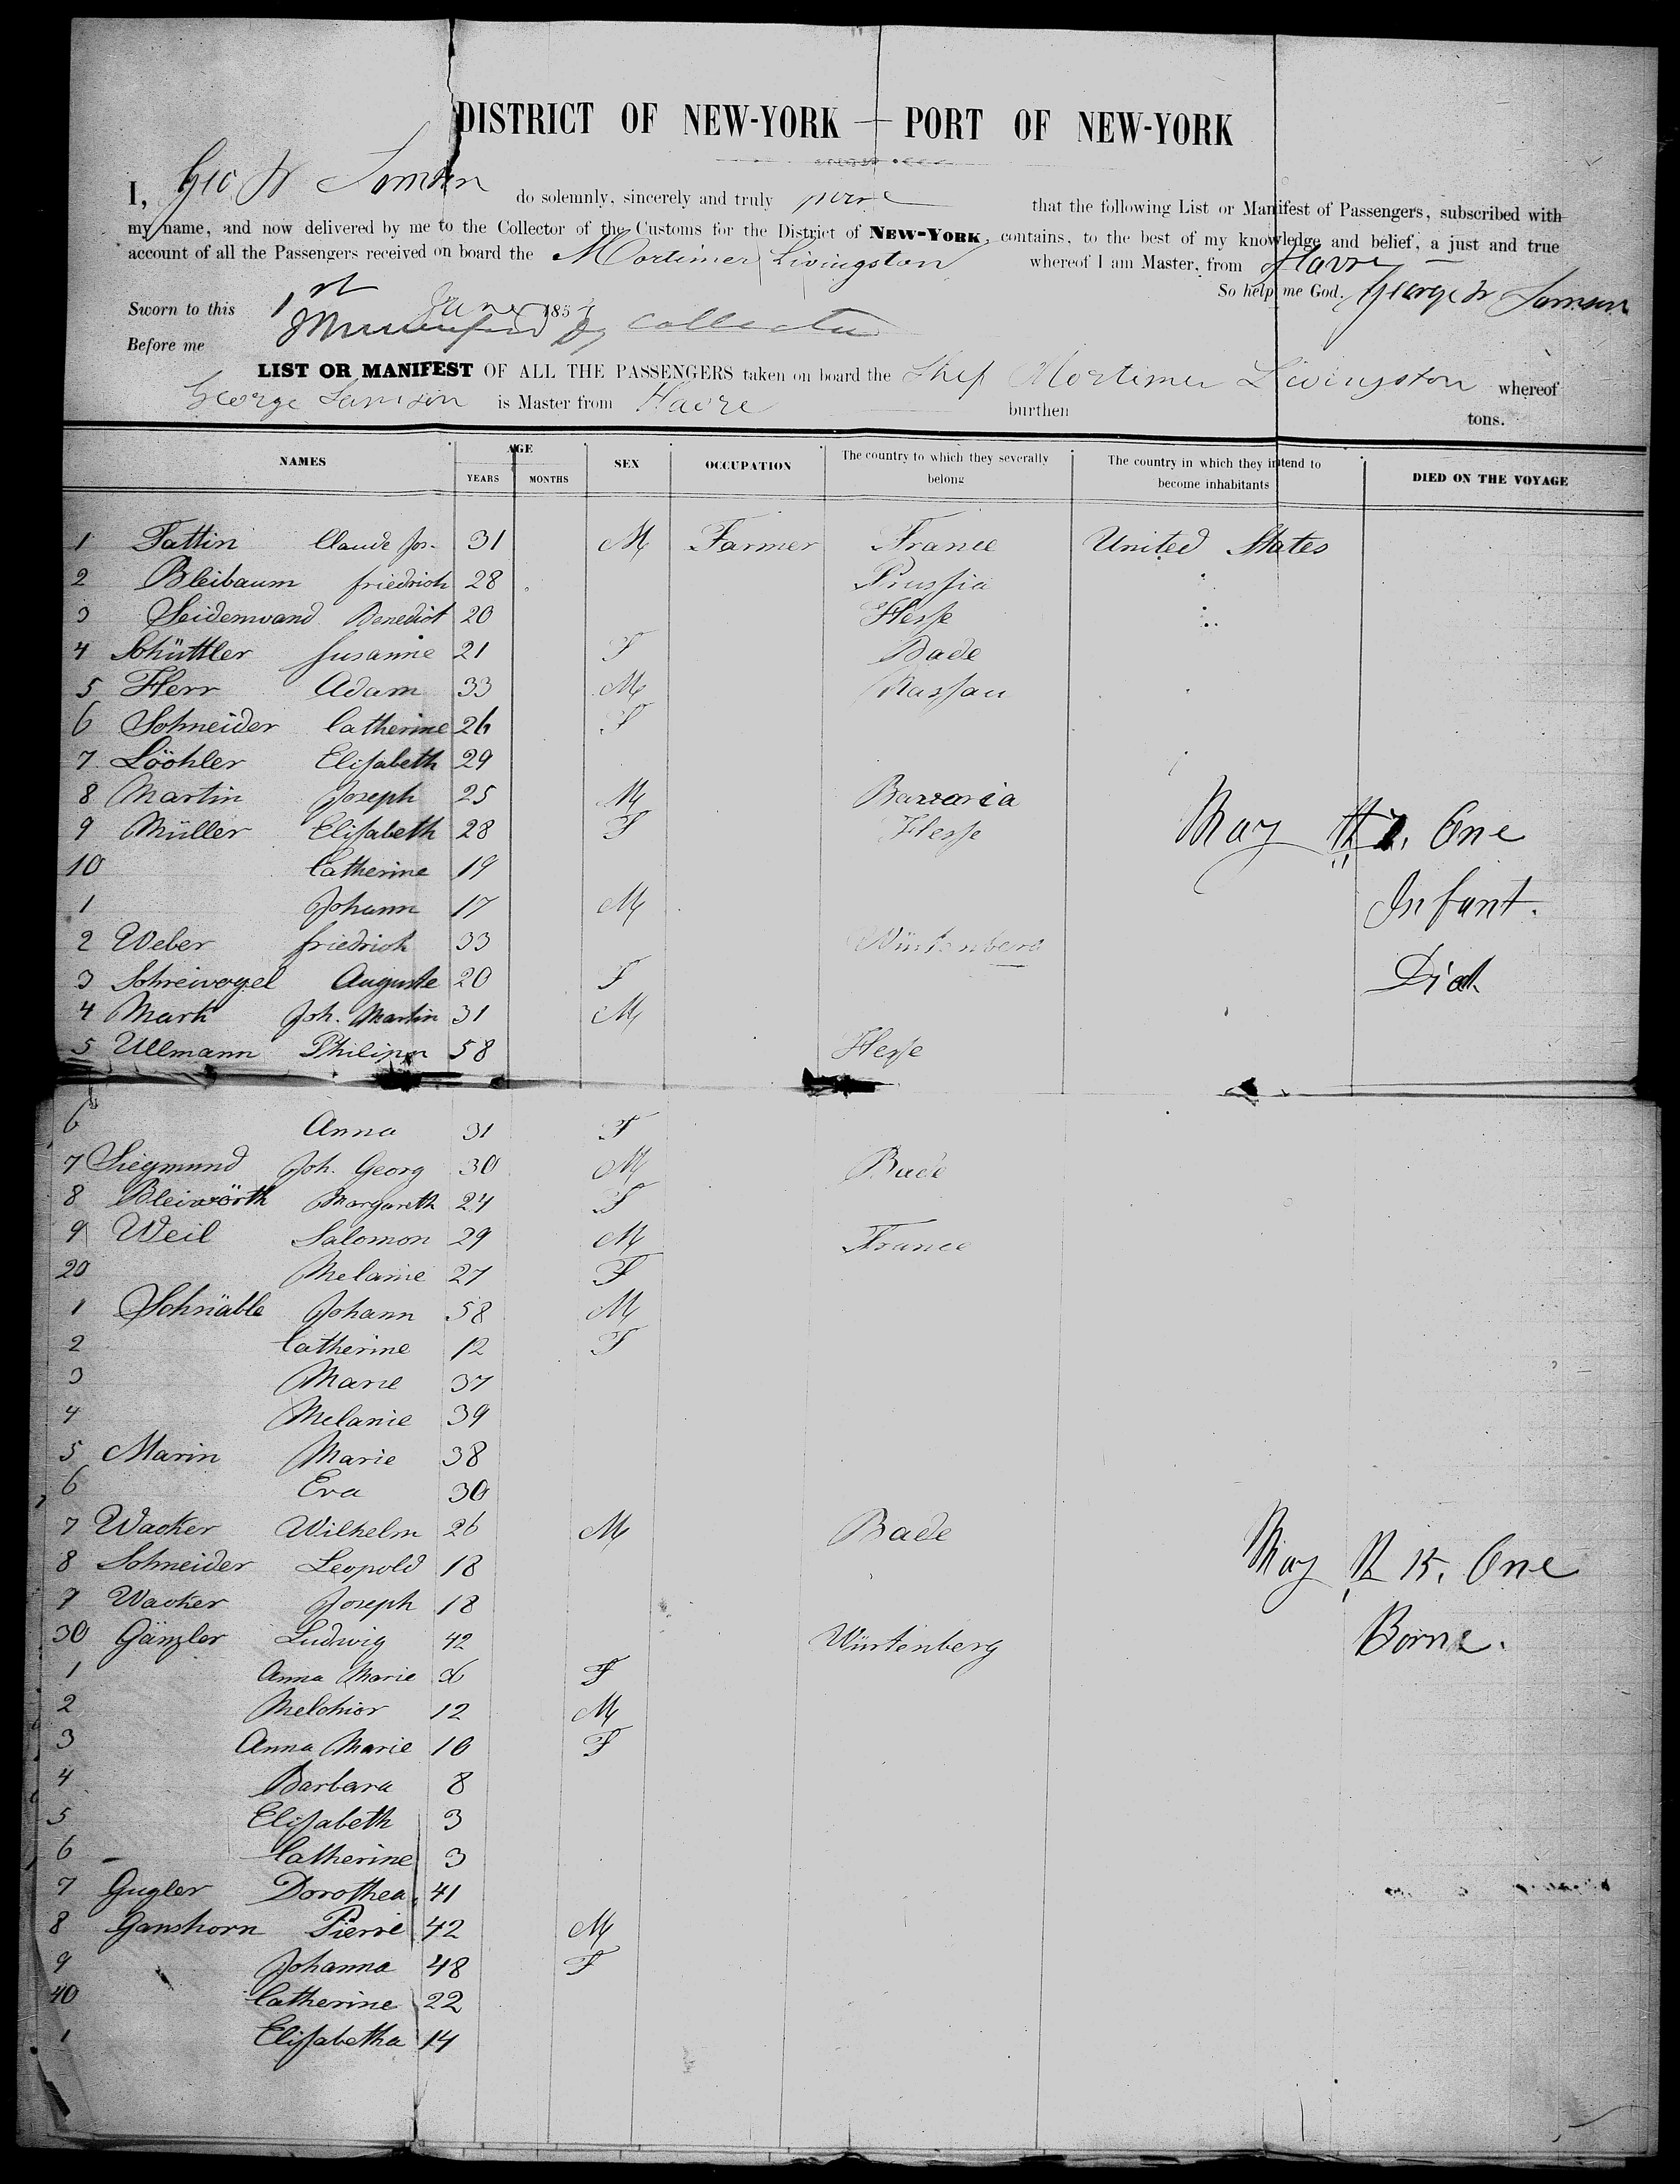 DISTRICT OF NEW-YORK — PORT OF NEW-YORK
I, Geo W Samson do solemnly, sincerely and truly that the following List or Manifest of Passengers, subscribed with
my name, and now delivered by me to the Collector of the Customs for the District of NEW-YORK, contains, to the best of my knowledge and belief, a just and true
account of all the Passengers received on board the Mortimer Livingston whereof I am Master, from Havre
So help me God. George W Samson
Sworn to this 1st June 185
Before me Collector
LIST OR MANIFEST OF ALL THE PASSENGERS taken on board the Ship Mortimer Livingston whereof
George Samson is Master from Havre burthen tons.
NAMES AGE YEARS MONTHS SEX OCCUPATION The country to which they severally belong The country in which they intend to become inhabitants DIED ON THE VOYAGE
1 Tattin Claude Jos. 31 M Farmer France United States
2 Bleibaum friedrich 28 Prussia
3 Seidenwand Benedict 20 Hesse
4 Schüttler Susanne 21 F Bade
5 Herr Adam 33 M Nassau
6 Schneider Catherine 26 F
7 Löchler Elisabeth 29
8 Martin Joseph 25 M Bavaria
9 Müller Elisabeth 28 F Hesse May 7. One
10 Catherine 19
1 Johann 17 M Infant.
2 Weber friedrich 33 Würtenberg
3 Schreivogel Auguste 20 F Died
4 Mark Joh. Martin 31 M
5 Ullmann Philipp 58 Hesse
6 Anna 31 F
7 Siegmund Joh. Georg 30 M Bade
8 Bleiwörth Margareth 24 F
9 Weil Salomon 29 M France
20 Melanie 27 F
1 Schnäble Johann 58 M
2 Catherine 12 F
3 Marie 37
4 Melanie 39
5 Marin Marie 38
6 Eva 30
7 Wacker Wilhelm 26 M Bade
8 Schneider Leopold 18 May 15. One
9 Wacker Joseph 18
30 Gänzler Ludwig 42 Würtenberg Borne.
1 Anna Marie F
2 Melchior 12 M
3 Anna Marie 10 F
4 Barbara 8
5 Elisabeth 3
6 Catherine 3
7 Gugler Dorothea 41
8 Ganshorn Pierre 42 M
9 Johanna 48 F
40 Catherine 22
1 Elisabetha 14